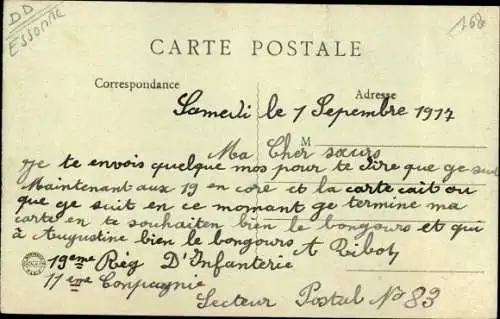 DD
ESSONNE
168
CARTE POSTALE
Correspondance
Adresse
Samedi le 1 Sepembre 1917
M
Ma Cher sœurs
Je te envois quelque mos pour te dire que ge suit
Maintenant aux 19 en core et la carte cait ou
que ge suit en ce momant ge termine ma
carte en te souhaiten bien le bongours et qui
à Augustine bien le bongours A Ribot
19eme Rég D'Infanterie
11eme Conpagnie
Secteur Postal No 83